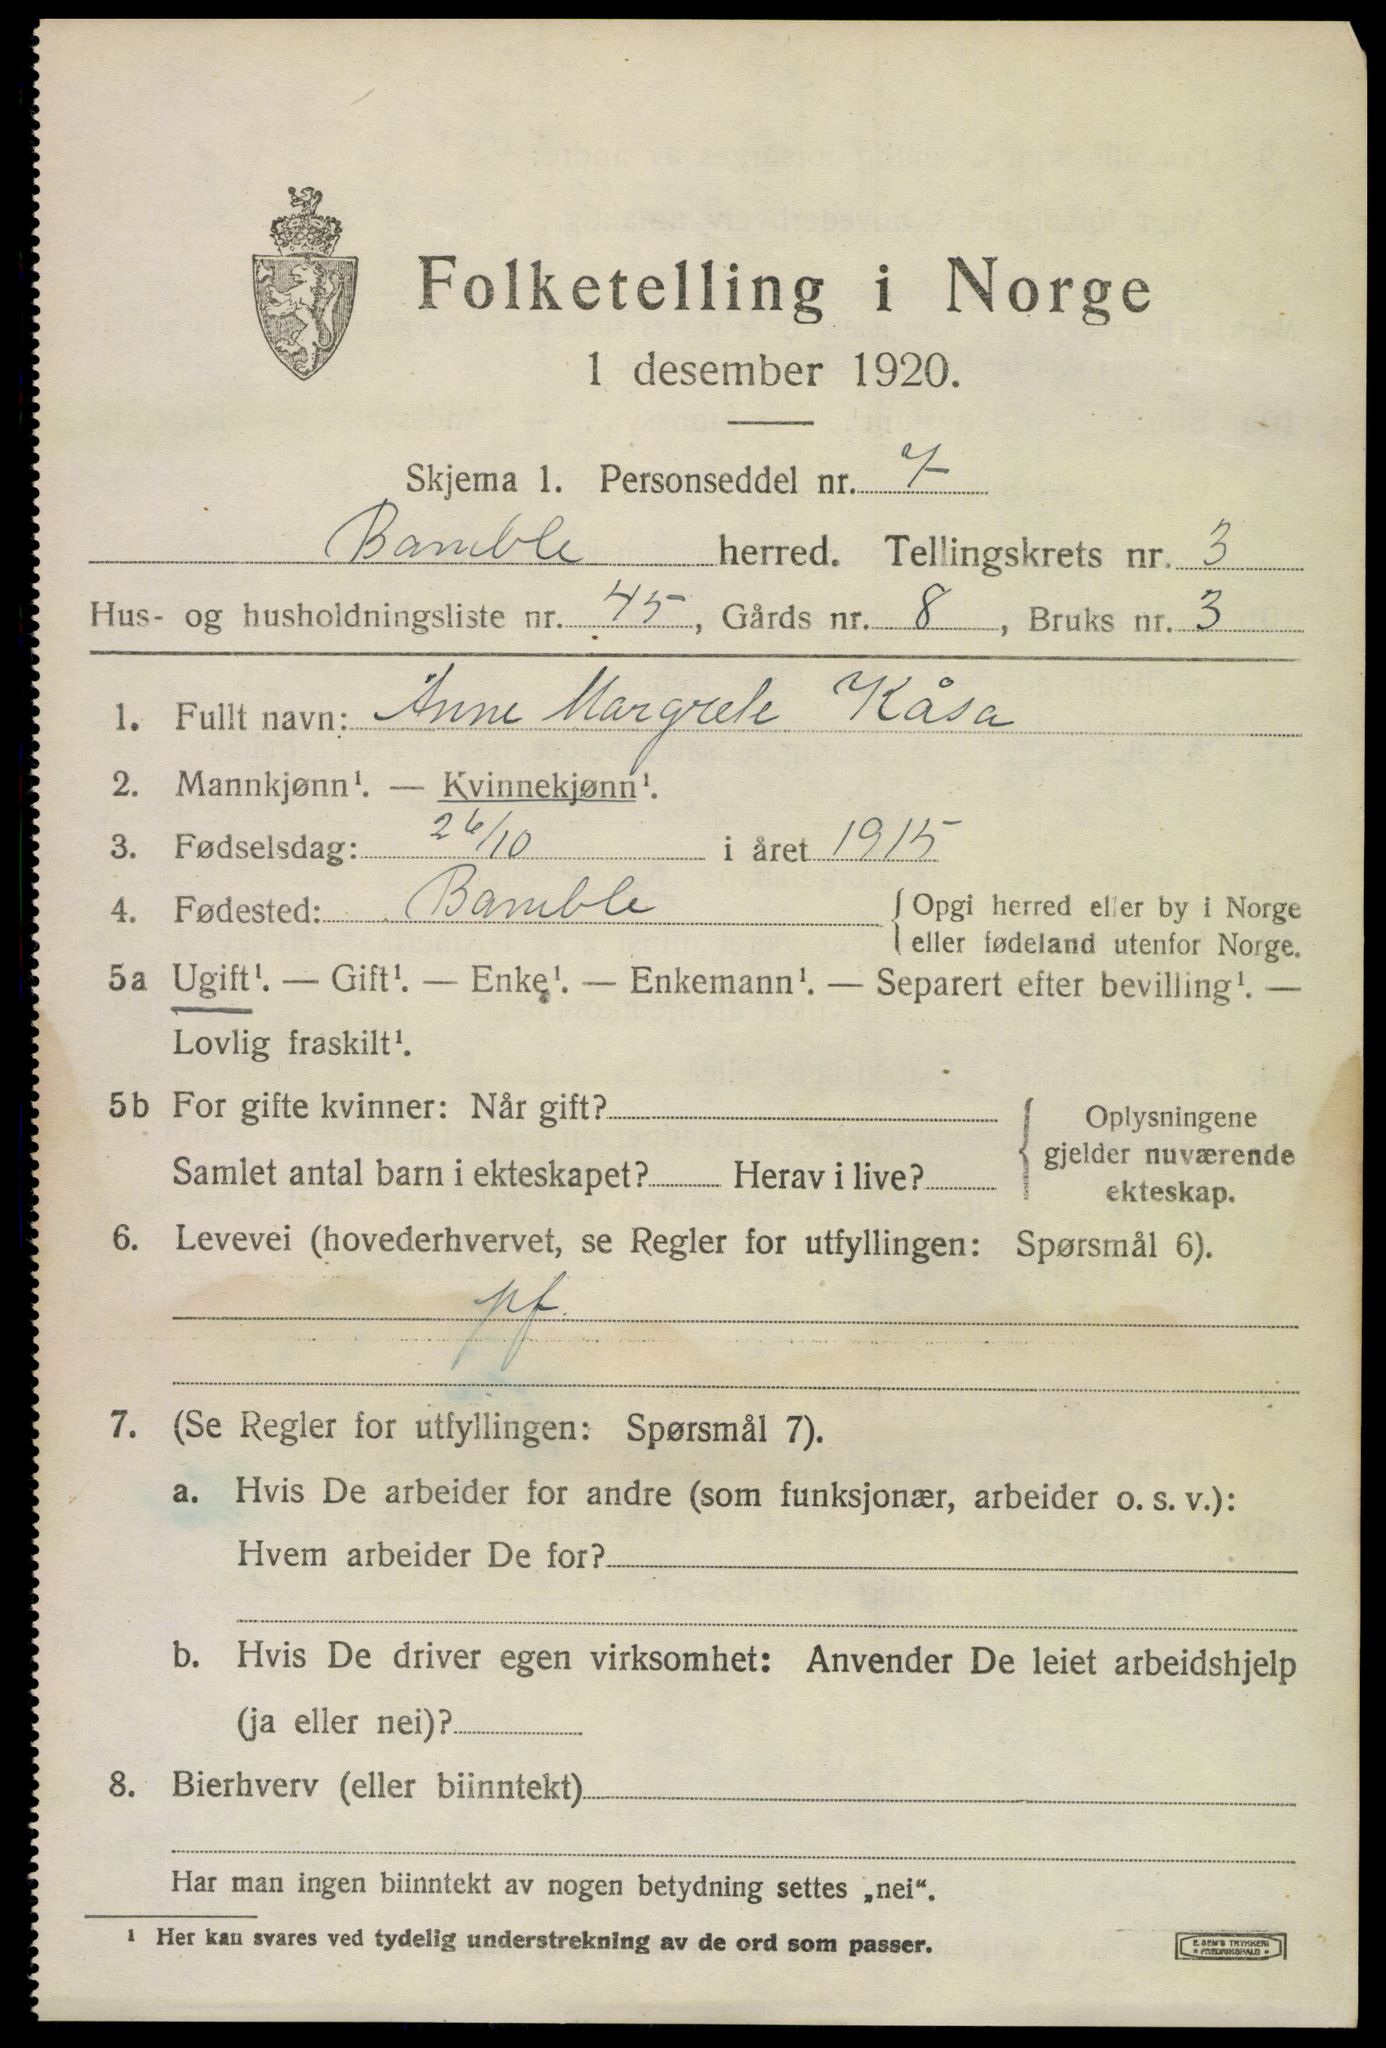 Folketelling i Norge
1 desember 1920.
Skjema 1. Personseddel nr. 7
Bamble herred. Tellingskrets nr. 3
Hus- og husholdningsliste nr. 45, Gårds nr. 8, Bruks nr. 3
1. Fullt navn: Anne Margrete Kåsa
2. Mannkjønn¹. — Kvinnekjønn¹.
3. Fødselsdag: 26/10 i året 1915
4. Fødested: Bamble { Opgi herred eller by i Norge
eller fødeland utenfor Norge.
5a Ugift¹. — Gift¹. — Enke¹. — Enkemann¹. — Separert efter bevilling¹. —
Lovlig fraskilt¹.
5b For gifte kvinner: Når gift? { Oplysningene
gjelder nuværende
Samlet antal barn i ekteskapet? Herav i live? ekteskap.
6. Levevei (hovederhvervet, se Regler for utfyllingen: Spørsmål 6).
pf.
7. (Se Regler for utfyllingen: Spørsmål 7).
a. Hvis De arbeider for andre (som funksjonær, arbeider o. s. v.):
Hvem arbeider De for?
b. Hvis De driver egen virksomhet: Anvender De leiet arbeidshjelp
(ja eller nei)?
8. Bierhverv (eller biinntekt)
Har man ingen biinntekt av nogen betydning settes „nei“.
¹ Her kan svares ved tydelig understrekning av de ord som passer.
E. SEM'S TRYKKERI
FREDRIKSHALD